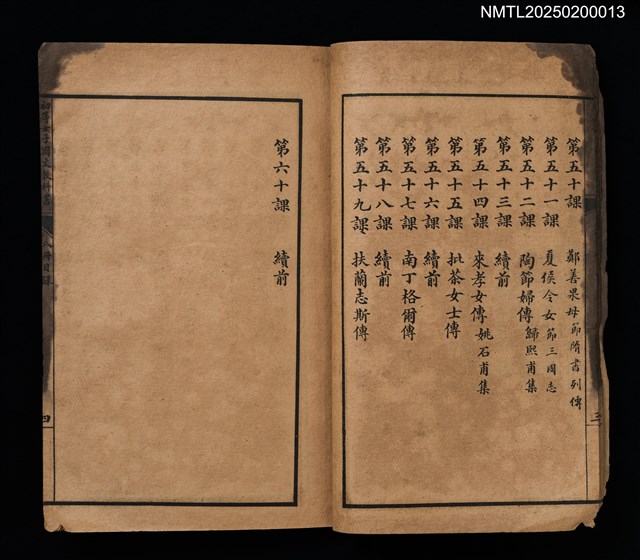 NMTL20250200013
第五十課 鄭善果母節隋書列傳
第五十一課 夏侯令女節三國志
第五十二課 陶節婦傳歸熙甫集
第五十三課 續前
第五十四課 來孝女傳姚石甫集
第五十五課 批茶女士傳
第五十六課 續前
第五十七課 南丁格爾傳
第五十八課 續前
第五十九課 扶蘭志斯傳
三
第六十課 續前
四